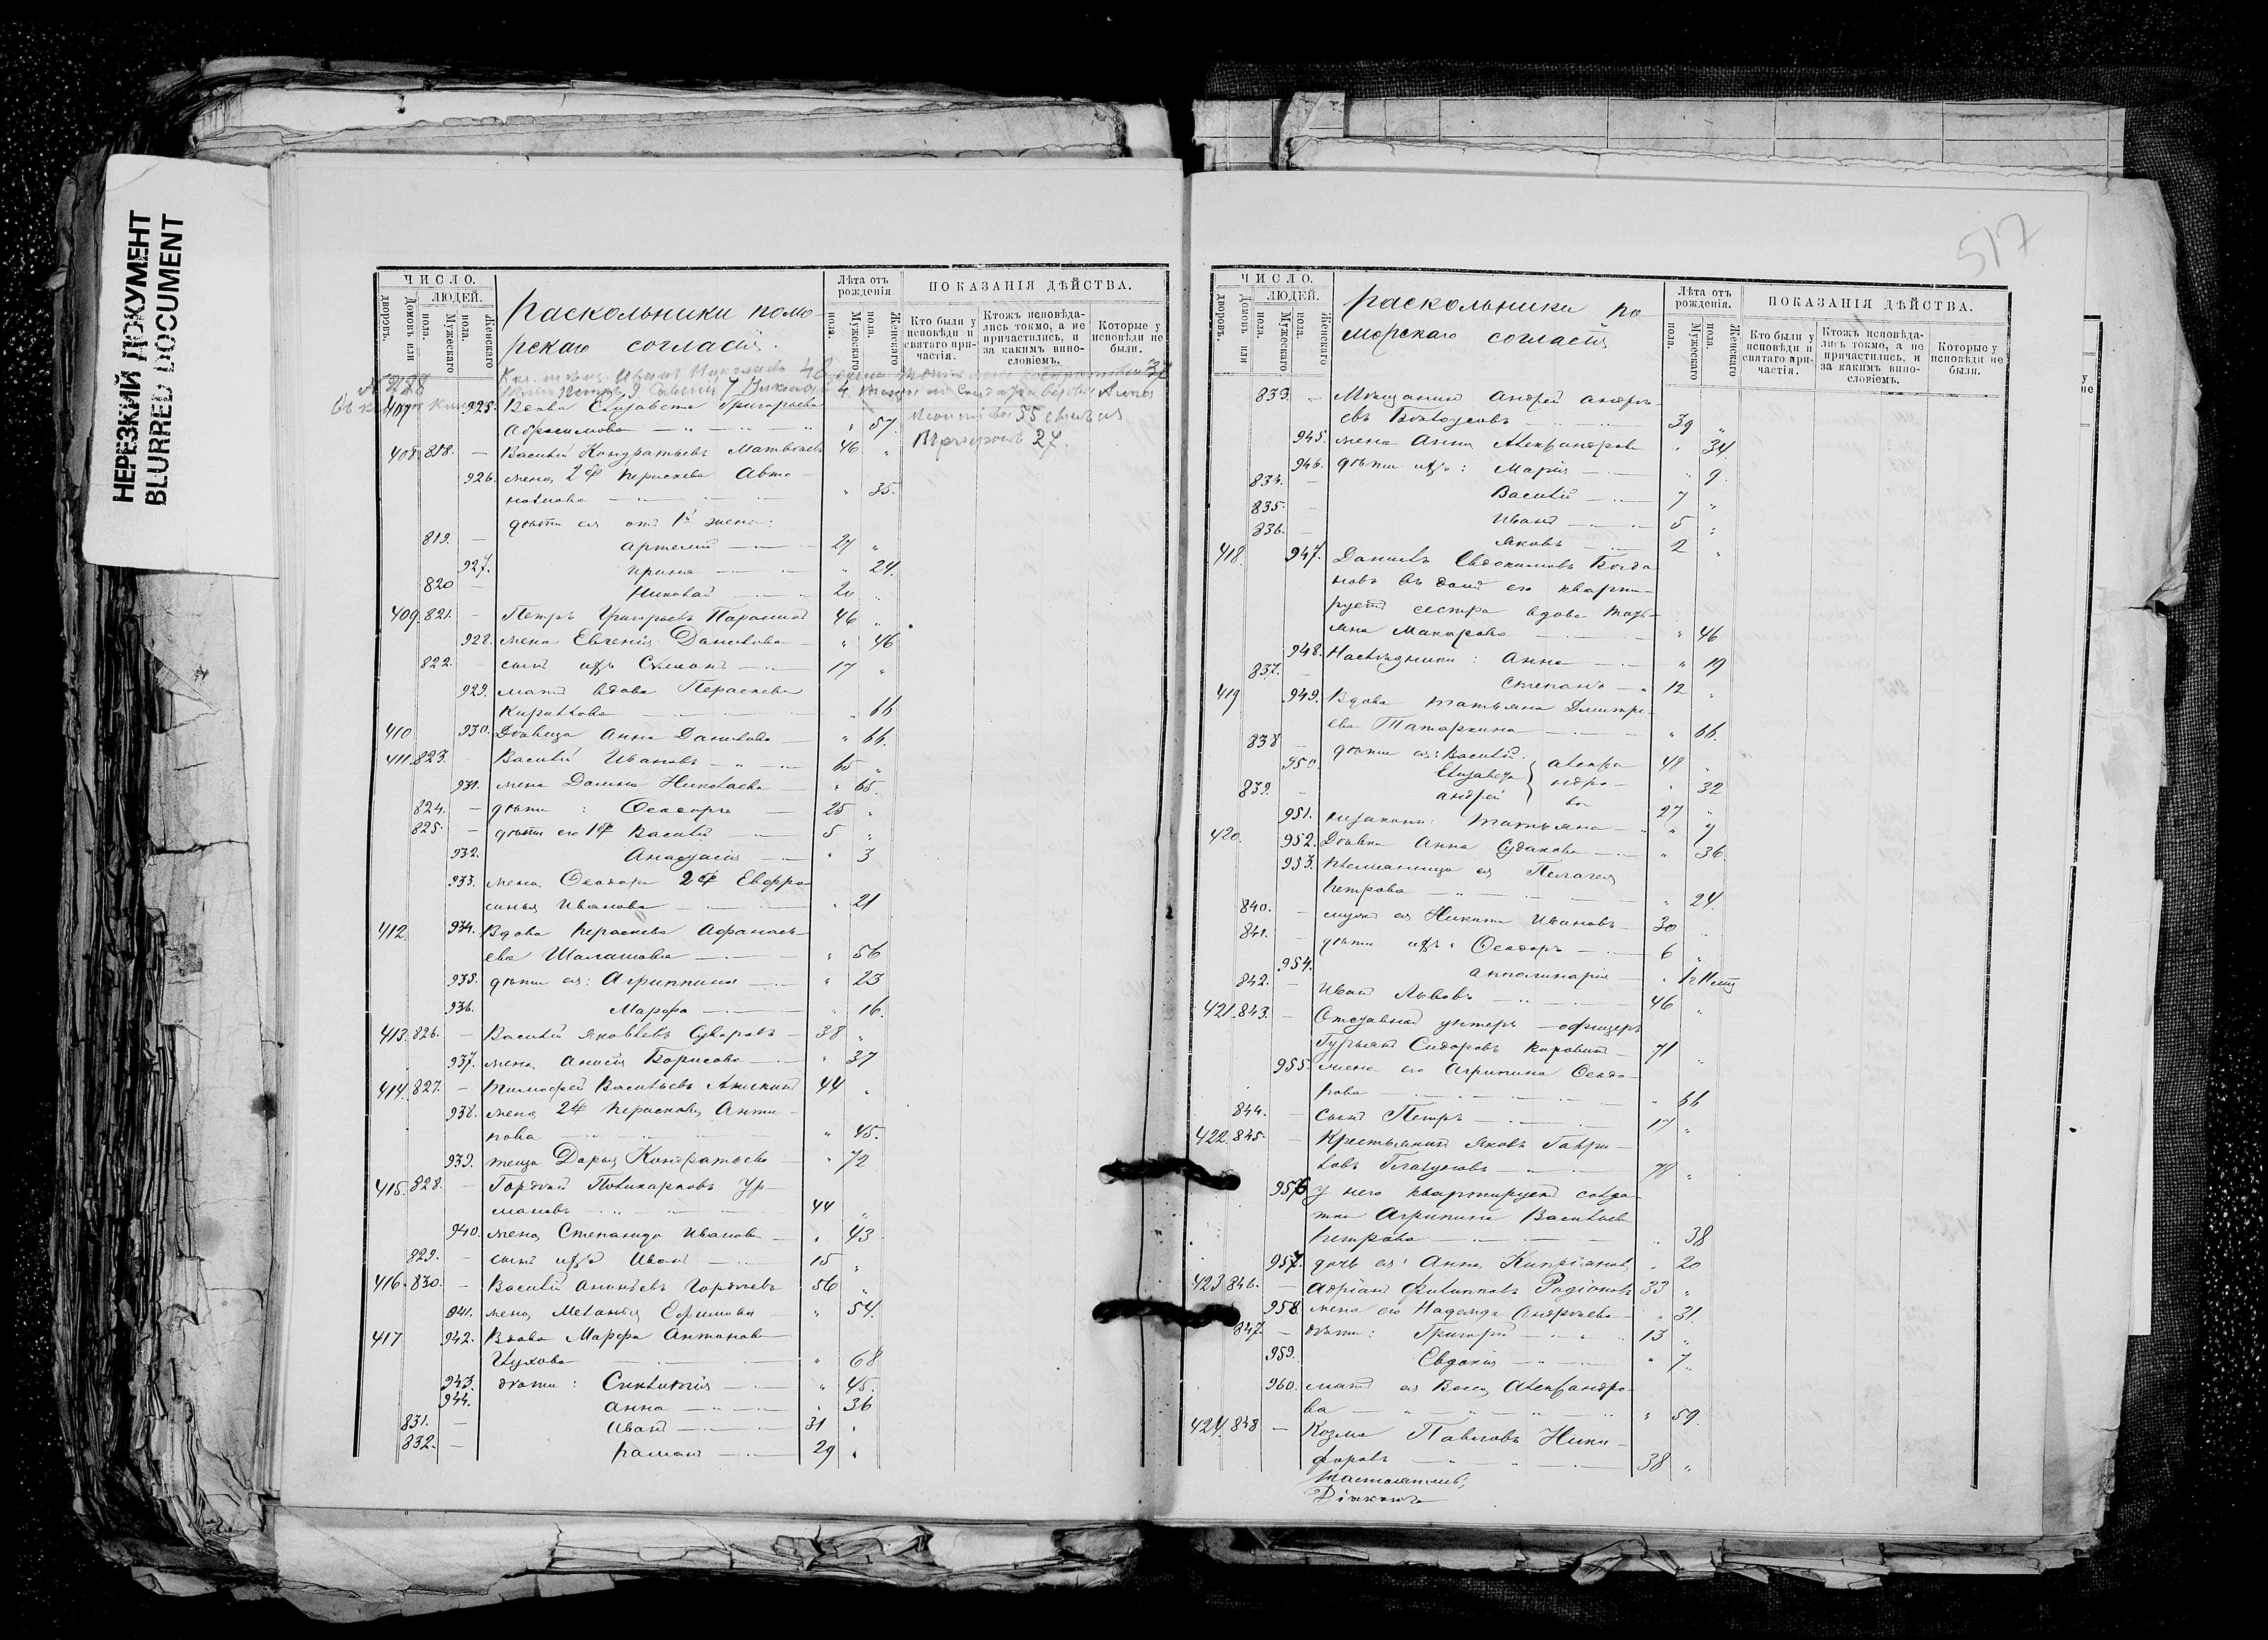 НЕРЕЗКИЙ ДОКУМЕНТ
BLURRED DOCUMENT
ЧИСЛО.
ЛЮДЕЙ.
дворовъ.
Домовъ или
Мужескаго пола.
Женскаго пола.
Раскольники помо-
рскаго согласія.
Лѣта отъ рожденія
Мужескаго пола.
Женскаго пола.
ПОКАЗАНІЯ ДѢЙСТВА.
Кто были у исповѣди и святаго причастія.
Ктожъ исповѣдались токмо, а не причастились, и за какимъ винословіемъ.
Которые у исповѣди не были.
407 925. Вдова Елизавета Григорьева
Абросимова " 57.
408. 818. – Василій Кондратьевъ Матвѣевъ 46 "
926. жена 2й Параскева Авто
номова " 35.
дѣти ея отъ 1й жены:
819. – Артемій 27 "
927. Ирина " 24.
820 – Николай 20 "
409. 821. – Петръ Григорьевъ Паранинъ 46 "
928. жена Евгенія Данилова " 46
822. – сынъ ихъ Симонъ 17 "
929. мать вдова Параскева
Кириллова " 66
410 930. Дѣвица Анна Данилова " 66.
411. 823. Василій Ивановъ 65 "
931. жена Домна Николаева " 65.
824. – дѣти : Ѳеодоръ 25 "
825. – дѣти его 1й Василій 5 "
932. Анастасія " 3
933. жена Ѳеодора 2й Евфро
синья Иванова " 21
412. 934. Вдова Параскева Аѳанась-
ева Шалашова " 56
935. дѣти ея: Агриппина " 23
936. Марѳа " 16.
413. 826. – Василій Яковлевъ Суворовъ 38 "
937. жена Анисія Борисова " 37
414. 827. – Тимофей Васильевъ Аникинъ 44 "
938. жена 2й Параскова Анти-
пова " 45.
939. теща Дарья Кондратьева " 72
415. 828. – Гордѣй Поликарповъ Ур-
мановъ 44 "
940. жена Степанида Иванова " 43
829. – сынъ ихъ Иванъ 15 "
416. 830. – Василій Ананьевъ Гордѣевъ 56 "
941. жена Меланья Ефимова " 54.
417 942. Вдова Марѳа Антонова
Цухова " 68
943. дѣти : Синклитикія " 45.
944. Анна " 36
831. – Иванъ 31 "
832. – Романъ 29 "
517
ЧИСЛО.
ЛЮДЕЙ.
дворовъ.
Домовъ или
Мужескаго пола.
Женскаго пола.
Раскольники по
морскаго согласія
Лѣта отъ рожденія.
Мужескаго пола.
Женскаго пола.
ПОКАЗАНІЯ ДѢЙСТВА.
Кто были у исповѣди и святаго причастія.
Ктожъ исповѣдались токмо, а не причастились, и за какимъ винословіемъ.
Которые у исповѣди не были.
833. – Мѣщанинъ Андрей Андре-
евъ 39 "
945. жена Анна Александрова " 34.
946. дѣти ихъ: Марія " 9.
834. – Василій 7 "
835. – Иванъ 5 "
836. – Яковъ 2 "
418 947. Даніилъ Евдокимовъ Богда
новъ въ домѣ его кварти-
руетъ сестра вдова Тать-
яна Макарова " 46
948. Наслѣдники : Анна " 19
837. – Степанъ 12 "
419 949. Вдова Татьяна Дмитрі-
ева Татаркина " 66.
838 – дѣти ея: Василій 48 "
950. Елизавета " 32
839. – Андрей 27 "
Александрова
951. незакон: Татьяна " 7
420. 952. Дѣвка Анна Судакова " 36.
953. племянница ея Пелагея
Петрова " 24.
840. – мужъ ея Никита Ивановъ 30 "
841. – дѣти ихъ: Ѳеодоръ 6 "
954. Аполинарія "
842. – Иванъ Львовъ 46 "
421. 843. – Отставной унтеръ-офицеръ
Гурьянъ Сидоровъ Коровинъ 71 "
955. жена его Агрипина Ѳеодо-
рова " 66
844. – сынъ Петръ 17 "
422. 845. – Крестьянинъ Яковъ Гаври-
ловъ Глазуновъ 78 "
956 у него квартируетъ солда-
тка Агрипина Васильева
Петрова " 38
957. дочь ея: Анна Кипріанова " 20
423 846. – Адріанъ Филипповъ Родіоновъ 33 "
958. жена его Надежда Андреева " 31.
847. – дѣти: Григорій 13 "
959. Евдокія " 7.
960. мать ея Васса Александро-
ва " 59.
424. 848 – Козма Павловъ Ники-
форовъ 38 "
Настоятель,
Діаконъ